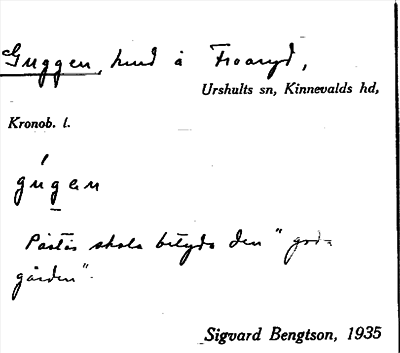 Guggen, hmd å Froaryd,
Urshults sn, Kinnevalds hd,
Kronob. l.
gúgen
Påstås skola betyda den "god=
gården".
Sigvard Bengtson, 1935